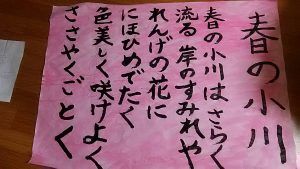 春の小川
春の小川はさらく
流る岸のすみれや
れんげの花に
にほひめでたく
色美しく咲けよく
ささやくごとく